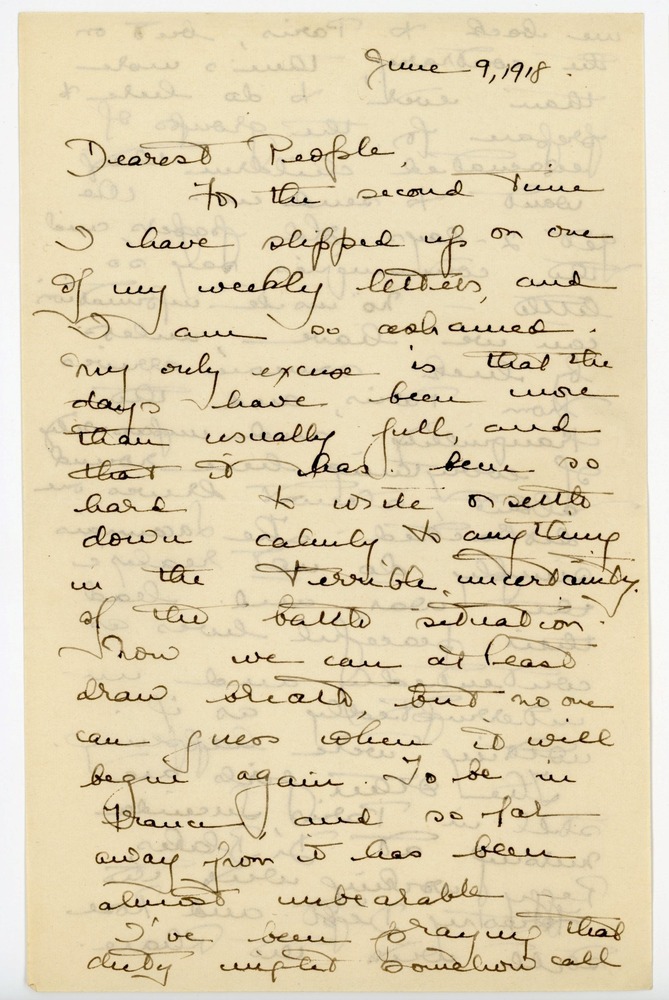 June 9, 1918.
Dearest People,
For the second time
I have slipped up on one
of my weekly letters, and
I am so ashamed.
My only excuse is that the
days have been more
than usually full, and
that it has been so
hard to write or settle
down calmly to anything
in the terrible uncertainty
of the battle situation.
Now we can at least
draw breath, but no one
can guess when it will
begin again. To be in
France and so far
away from it has been
almost unbearable
I've been praying that
duty might somehow call